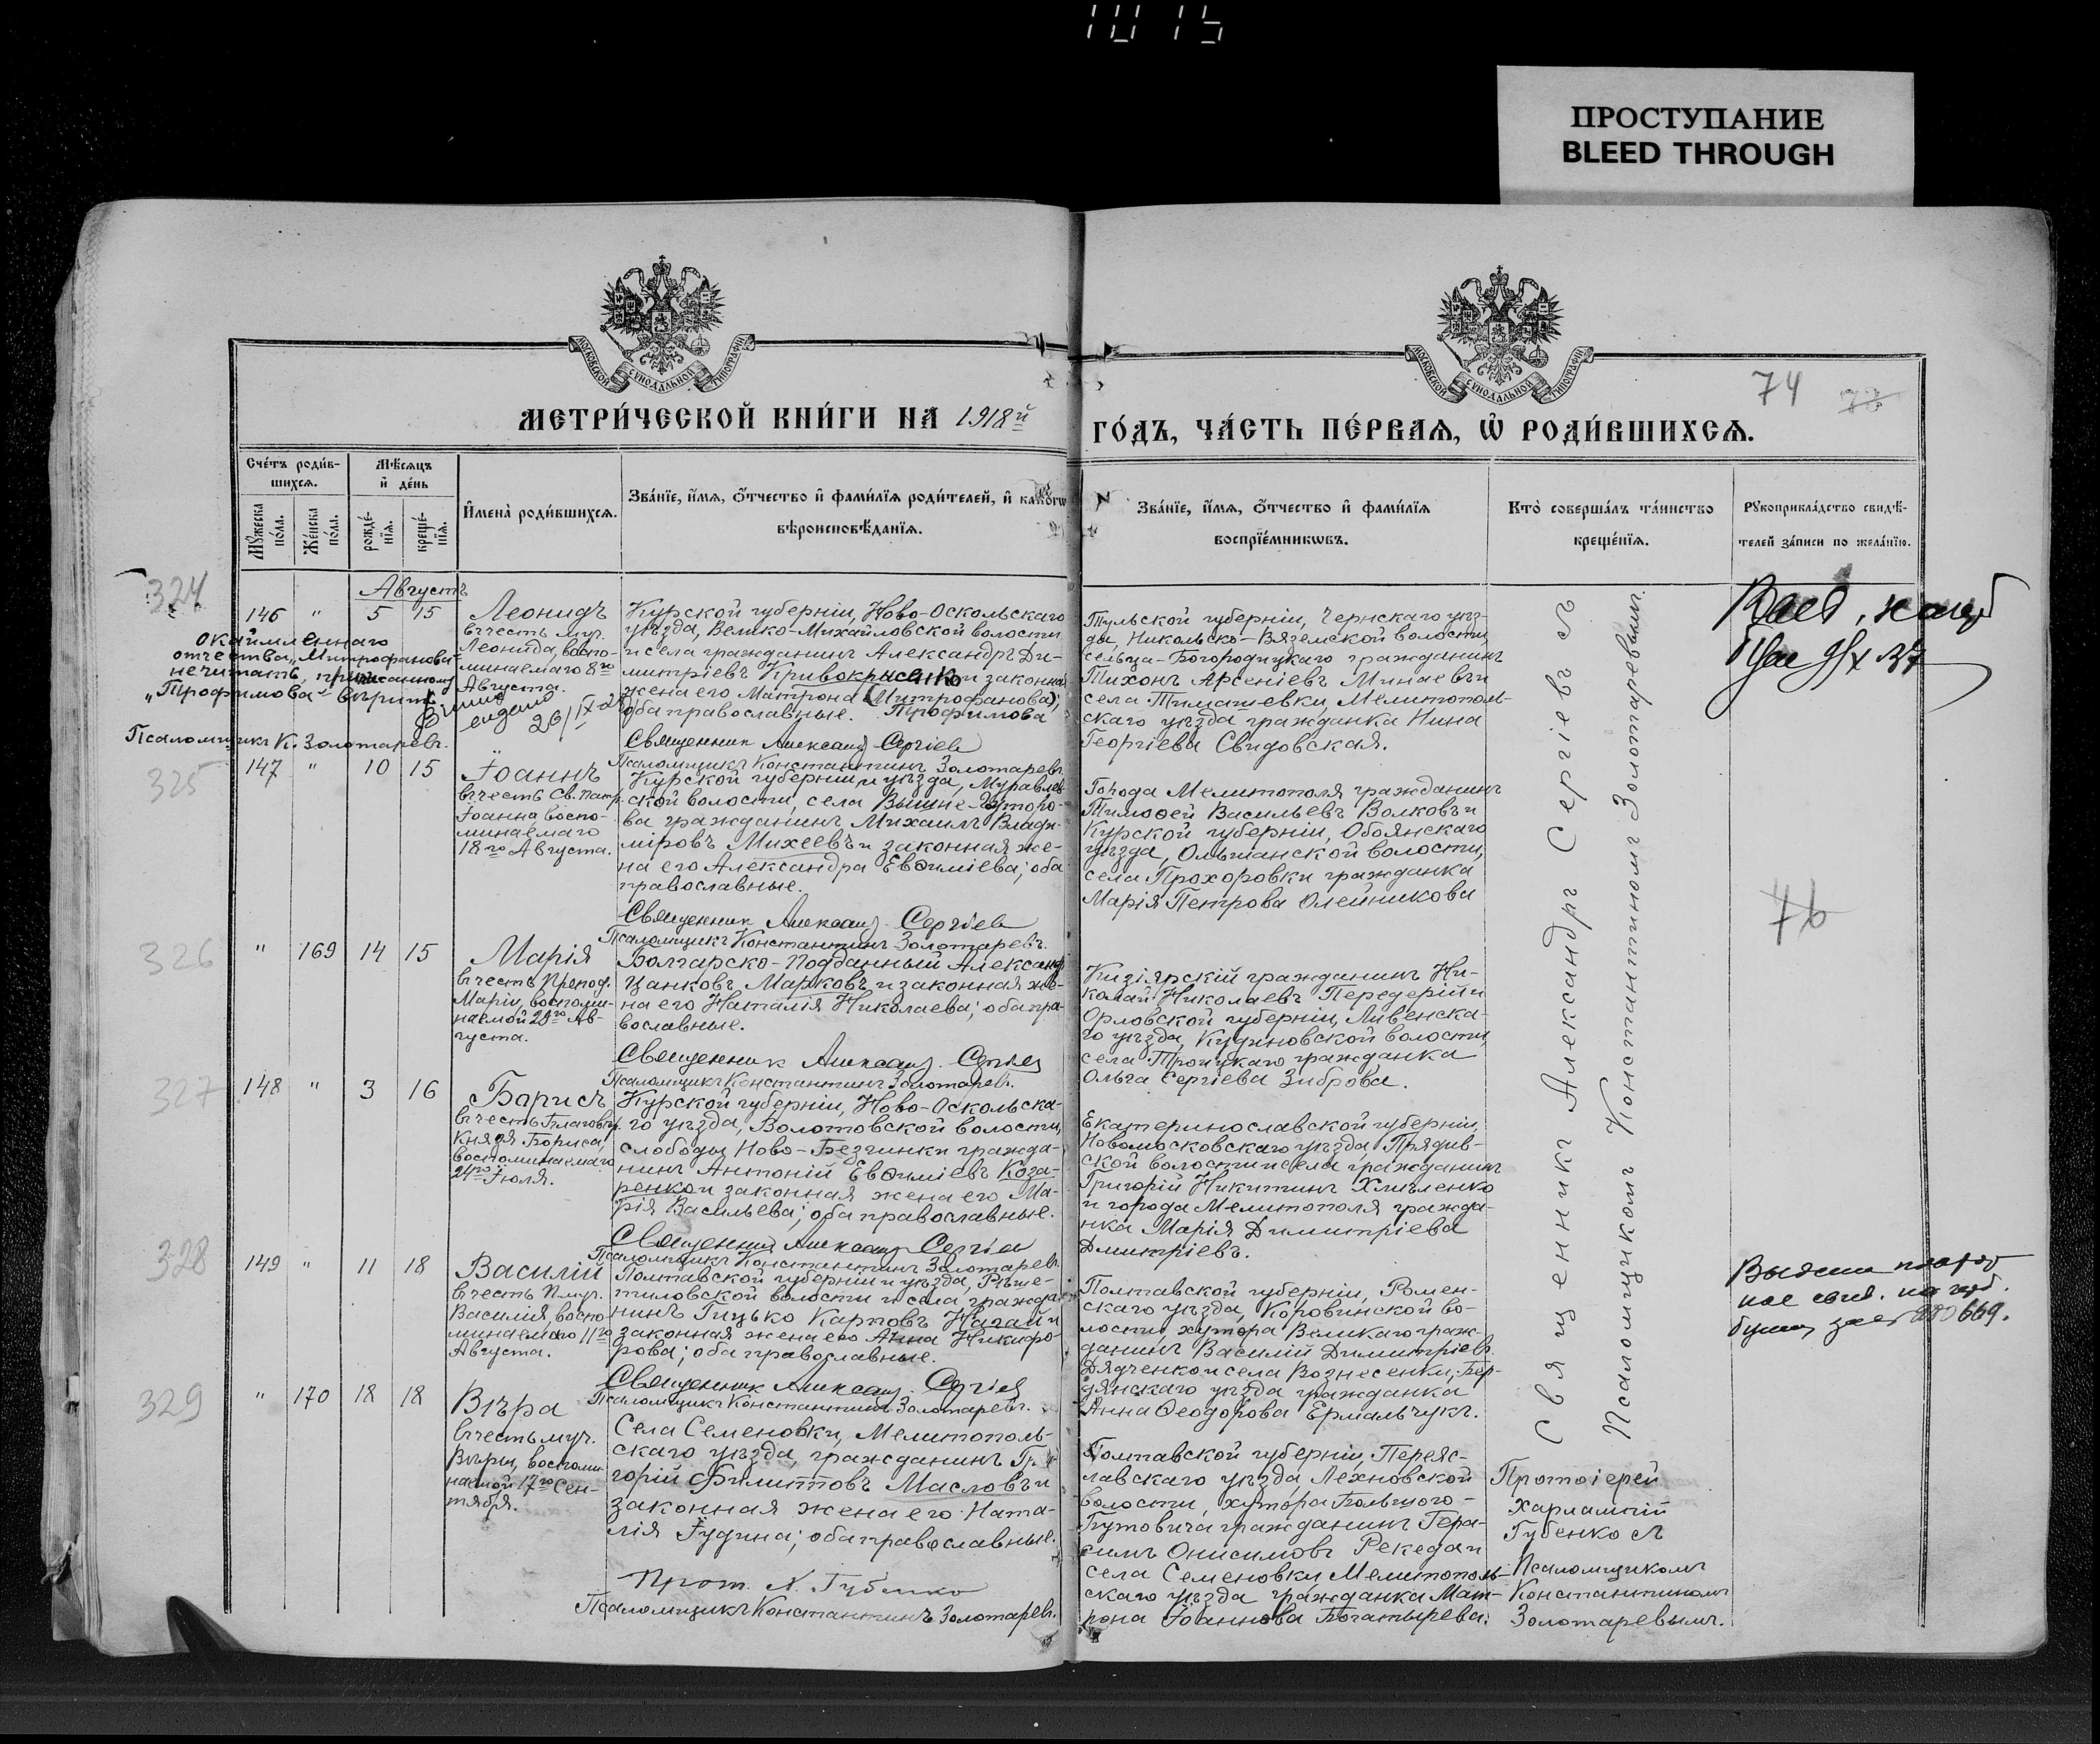 1015
ПРОСТУПАНИЕ
BLEED THROUGH
МОСКОВСКОЙ СУНОДАЛЬНОЙ ТИПОГРАФІИ
МОСКОВСКОЙ СУНОДАЛЬНОЙ ТИПОГРАФІИ
74 73
МЕТРИ́ЧЕСКОЙ КНИ́ГИ НА 1918й
ГО́ДЪ, ЧА́СТЬ ПЕ́РВАѦ, Ѡ҆ РОДИ́ВШИХСѦ.
Сче́тъ роди́в-
шихсѧ.
Мѣ́сѧцъ
и҆ де́нь
Мꙋ́жеска
по́ла.
Же́нска
по́ла.
рожде́-
нїѧ.
креще́-
нїѧ.
И҆мена̀ роди́вшихсѧ.
Зва́нїе, и҆́мѧ, ѻ҆́тчество и҆ фами́лїѧ роди́телей, и҆ како́гѡ
вѣроисповѣ́данїѧ.
Зва́нїе, и҆́мѧ, ѻ҆́тчество и҆ фами́лїѧ
воспрїе́мникѡвъ.
Кто̀ соверша́лъ та́инство
креще́нїѧ.
Рꙋкоприкла́дство свидѣ́-
телей за́писи по жела́нїю.
Августъ
324
146 " 5 15
Леонидъ
въ честь муч.
Леонида, воспо-
минаемаго 8го
Августа.
Курской губерніи, Ново-Оскольскаго
уѣзда, Велико-Михайловской волости
и села гражданинъ Александръ Ди-
митріевъ Кривокрисенко и законная
жена его Матрона (Митрофанова);
оба православные. Трофимова
Священник Александ. Сергіев
Псаломщикъ Константинъ Золотаревъ.
окаймленнаго
отчества "Митрофанова"
не читать, приписанному
"Трофимова" вѣрить
Псаломщикъ К. Золотаревъ.
Тульской губерніи, Чернскаго уѣз-
да, Никольско-Вяземской волости,
сельца-Богородицкаго гражданинъ
Тихонъ Арсеніевъ Минаевъ и
села Тимашевки, Мелитополь-
скаго уѣзда гражданка Нина
Георгіева Свидовская.
325
147 " 10 15
Іоаннъ
въ честь Св. Патр.
Іоанна воспо-
минаемаго
18го Августа.
Курской губерніи и уѣзда, Муравлев-
ской волости, села Вышне-Гуторо-
ва гражданинъ Михаилъ Влади-
міровъ Михеевъ и законная же-
на его Александра Евѳиміева; оба
православные.
Священник Александ. Сергіев
Псаломщикъ Константинъ Золотаревъ.
Города Мелитополя гражданинъ
Тимоѳей Васильевъ Волковъ и
Курской губерніи, Обоянскаго
уѣзда, Ольшанской волости,
села Прохоровки гражданка
Марія Петрова Олейникова
76
326
" 169 14 15
Марія
въ честь Препод.
Маріи, воспоми-
наемой
густа.
Болгарско-Подданный Александ.
Цанковъ Марковъ и законная же-
на его Наталія Николаева; оба пра-
вославные.
Священник Александ. Сергіев
Псаломщикъ Константинъ Золотаревъ.
Кизіярскій гражданинъ Ни-
колай Николаевъ Передерій и
Орловской губерніи, Ливенска-
го уѣзда, волости,
села Троицкаго гражданка
Ольга Сергіева Зиброва.
327
148 " 3 16
Барисъ
въ честь Благовѣр.
Князя Бориса,
воспоминаемаго
24го Іюля.
Курской губерніи, Ново-Оскольска-
го уѣзда, Волотовской волости,
слободы Ново-Безгинки гражда-
нинъ Антоній Евѳиміевъ Коза-
ренко и законная жена его Ма-
рія Васильева; оба православные.
Священник Александ. Сергіев
Псаломщикъ Константинъ Золотаревъ.
Екатеринославской губерніи,
Новомосковскаго уѣзда, Прядив-
ской волости и села гражданинъ
Григорій Никитинъ Хмѣленко
и города Мелитополя гражда-
нка Марія Димитріева
Дмитріевъ.
328
149 " 11 18
Василій
въ честь муч.
Василія, воспо-
минаемаго 11го
Августа.
Полтавской губерніи и уѣзда, Рѣше-
тиловской волости и села гражда-
нинъ Гицько Карповъ Нагай и
законная жена его Анна Никифо-
рова; оба православные.
Священник Александ. Сергіев
Псаломщикъ Константинъ Золотаревъ.
Полтавской губерніи, Ромен-
скаго уѣзда, Коровинской во-
лости, хутора Великаго граж-
данинъ Василій Димитріевъ
Дядченко и села Вознесенки, Бер-
дянскаго уѣзда гражданка
Анна Ѳеодорова Ермальчукъ.
329
" 170 18 18
Вѣра
въ честь муч.
Вѣры, воспоми-
наемой 17го Сен-
тября.
Села Семеновки, Мелитополь-
скаго уѣзда, гражданинъ Гри-
горій Филипповъ Масловъ и
законная жена его Ната-
лія Іудина; оба православные.
Прот. Х. Губенко
Псаломщикъ Константинъ Золотаревъ.
Полтавской губерніи, Переяс-
лавскаго уѣзда, Лехновской
волости, хутора Большого-
Бутовича гражданинъ Гера-
симъ Онисимовъ Рекеда и
села Семеновки Мелитополь-
скаго уѣзда гражданка Мат-
рона Іоаннова Богатырева.
Священникъ Александръ Сергіевъ съ
Псаломщикомъ Константиномъ Золотаревымъ.
Протоіерей
Харлампій
Губенко съ
Псаломщикомъ
Константиномъ
Золотаревымъ.